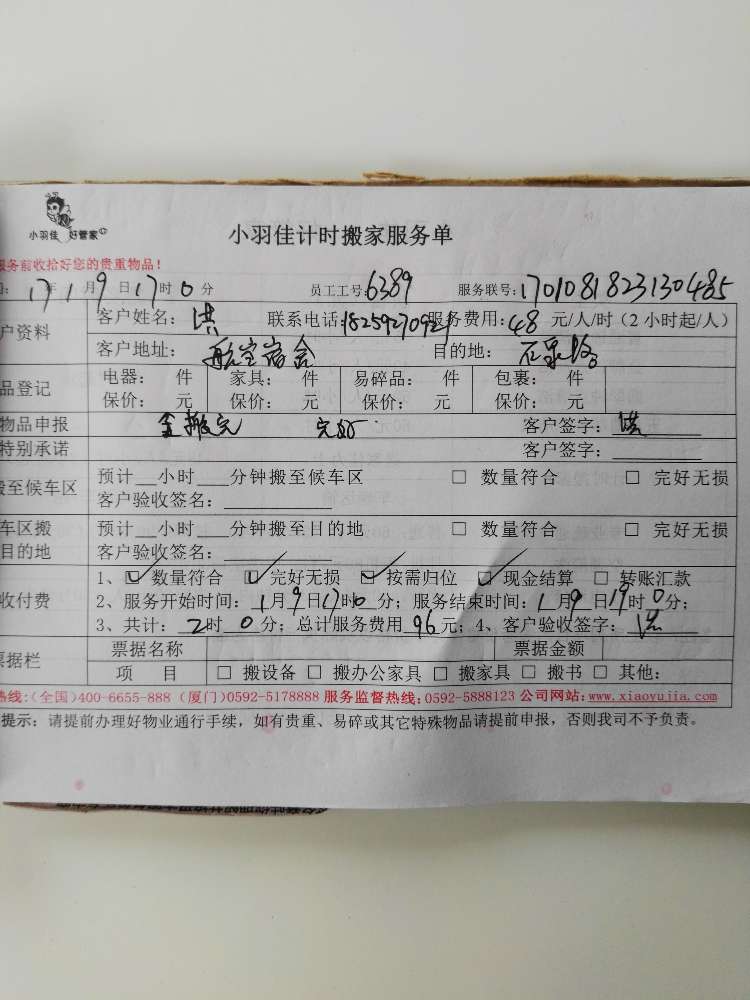 小羽佳 好管家
小羽佳计时搬家服务单
服务前收拾好您的贵重物品！
17年1月9日17时0分 员工工号：6389 服务联号：1701081823130485
户资料 客户姓名：洪 联系电话：18259270921 服务费用：48 元/人/时（2小时起/人）
客户地址：航空宿舍 目的地：
品登记 电器： 件 家具： 件 易碎品： 件 包裹： 件
保价： 元 保价： 元 保价： 元 保价： 元
物品申报 全搬完 完好 客户签字：洪
特别承诺 客户签字：
搬至候车区 预计__小时___分钟搬至候车区 □ 数量符合 □ 完好无损
客户验收签名：
车区搬 预计__小时___分钟搬至目的地 □ 数量符合 □ 完好无损
目的地 客户验收签名：
收付费 1、☑ 数量符合 ☑ 完好无损 ☑ 按需归位 ☑ 现金结算 □ 转账汇款
2、服务开始时间：1月9日17时0分；服务结束时间：1月9日19时0分；
3、共计：2时0分；总计服务费用96元；4、客户验收签字：洪
票据栏 票据名称 票据金额
项 目 □ 搬设备 □ 搬办公家具 □ 搬家具 □ 搬书 □ 其他：
热线：（全国）400-6655-888（厦门）0592-5178888 服务监督热线：0592-5888123 公司网站：www.xiaoyujia.com
提示：请提前办理好物业通行手续，如有贵重、易碎或其它特殊物品请提前申报，否则我司不予负责。